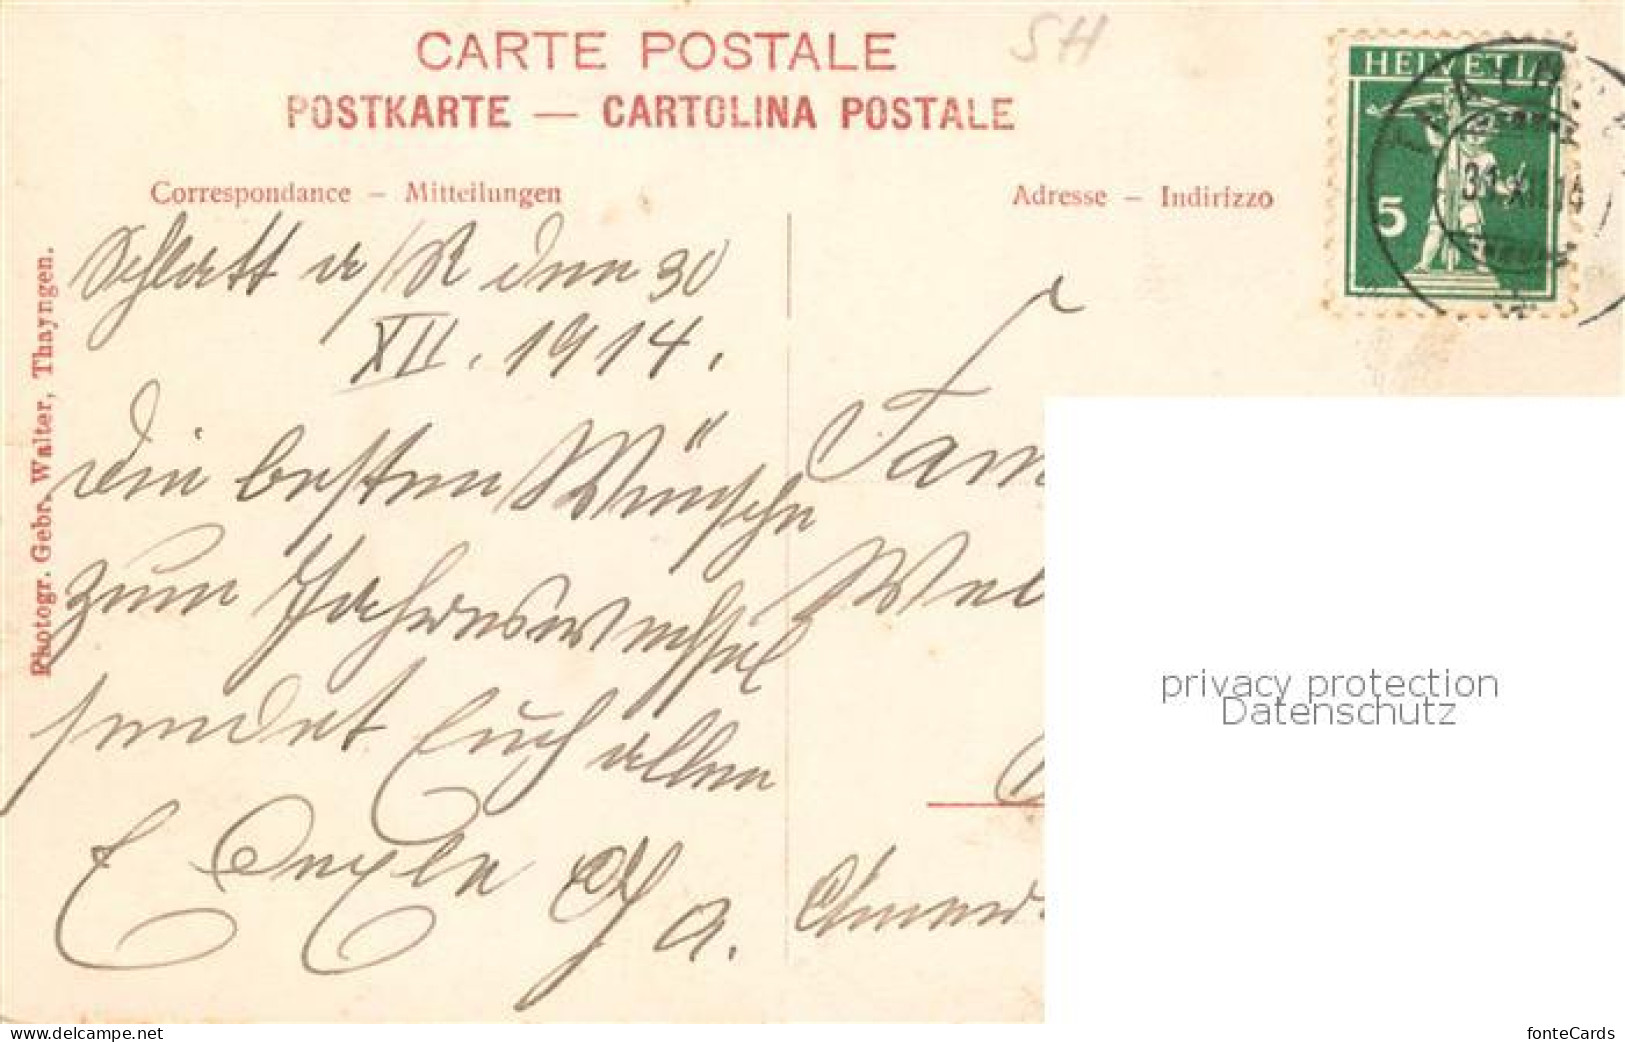 CARTE POSTALE
SH
POSTKARTE — CARTOLINA POSTALE
HELVETIA
5
31.XII.14
Correspondance – Mitteilungen
Adresse – Indirizzo
Photogr. Gebr. Walter, Thayngen.
Schlatt a/R den 30
XII. 1914.
Die besten Wünsche
zum Jahreswechsel
sendet Euch allen
E
Fam
Wel
privacy protection
Datenschutz
fonteCards
www.delcampe.net